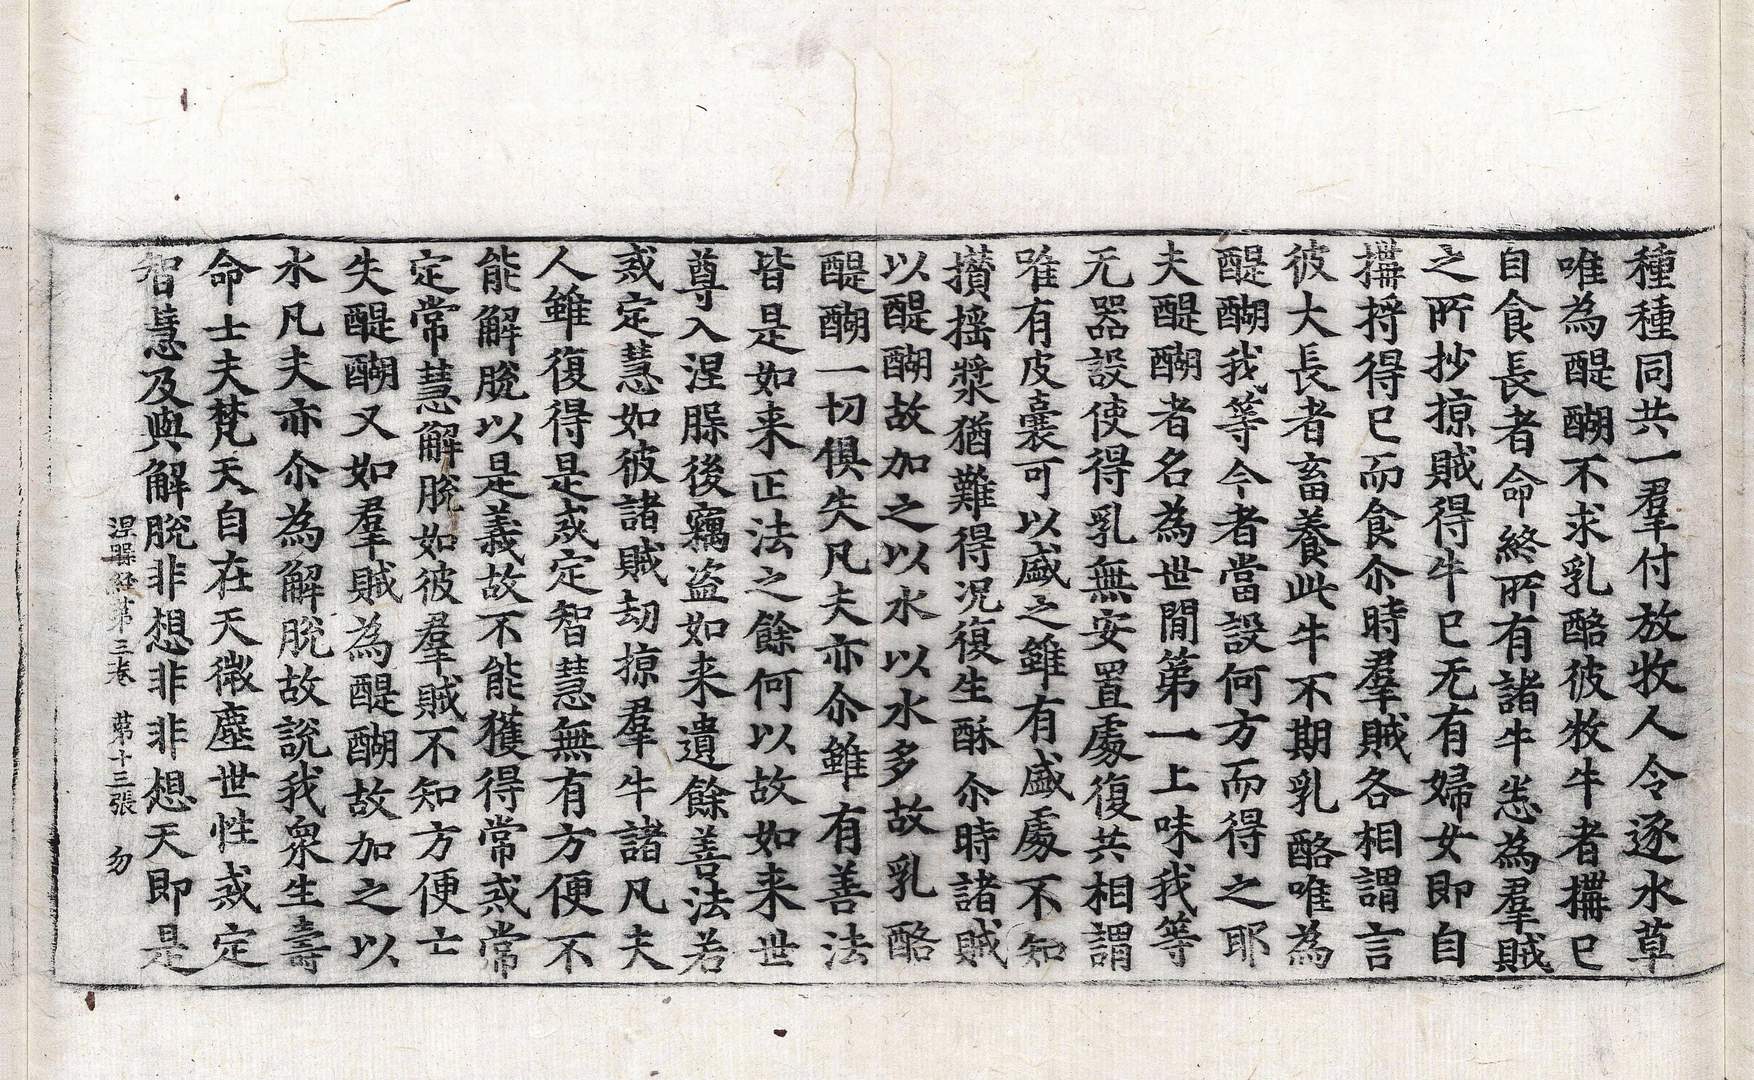 種種同共一羣付放牧人令逐水草
唯為醍醐不求乳酪彼牧牛者搆已
自食長者命終所有諸牛悉為羣賊
之所抄掠賊得牛已无有婦女即自
搆捋得已而食尒時羣賊各相謂言
彼大長者畜養此牛不期乳酪唯為
醍醐我等今者當設何方而得之耶
夫醍醐者名為世閒第一上味我等
无器設使得乳無安置處復共相謂
唯有皮囊可以盛之雖有盛處不知
攅搖漿猶難得況復生酥尒時諸賊
以醍醐故加之以水以水多故乳酪
醍醐一切俱失凡夫亦尒雖有善法
皆是如来正法之餘何以故如来世
尊入涅槃後竊盜如来遺餘善法若
戒定慧如彼諸賊劫掠羣牛諸凡夫
人雖復得是戒定智慧無有方便不
能解脫以是義故不能獲得常戒常
定常慧解脫如彼羣賊不知方便亡
失醍醐又如羣賊為醍醐故加之以
水凡夫亦尒為解脫故說我衆生壽
命士夫梵天自在天微塵世性戒定
智慧及與解脫非想非非想天即是
涅槃經第三卷 第十三張 勿